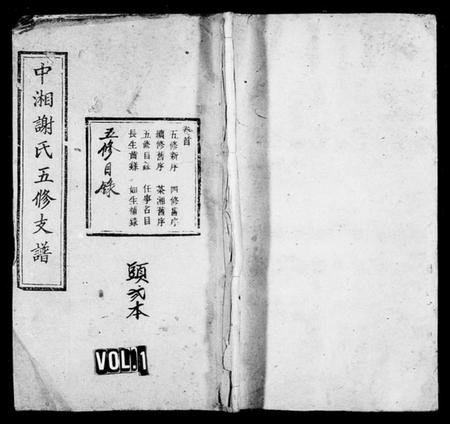 中湘謝氏五修支譜
卷首
五修新序 四修舊序
續修舊序 茶湘舊序
五修目錄 任事名目
長生舊錄 如生補錄
五修目錄
頤弍本
VOL.1